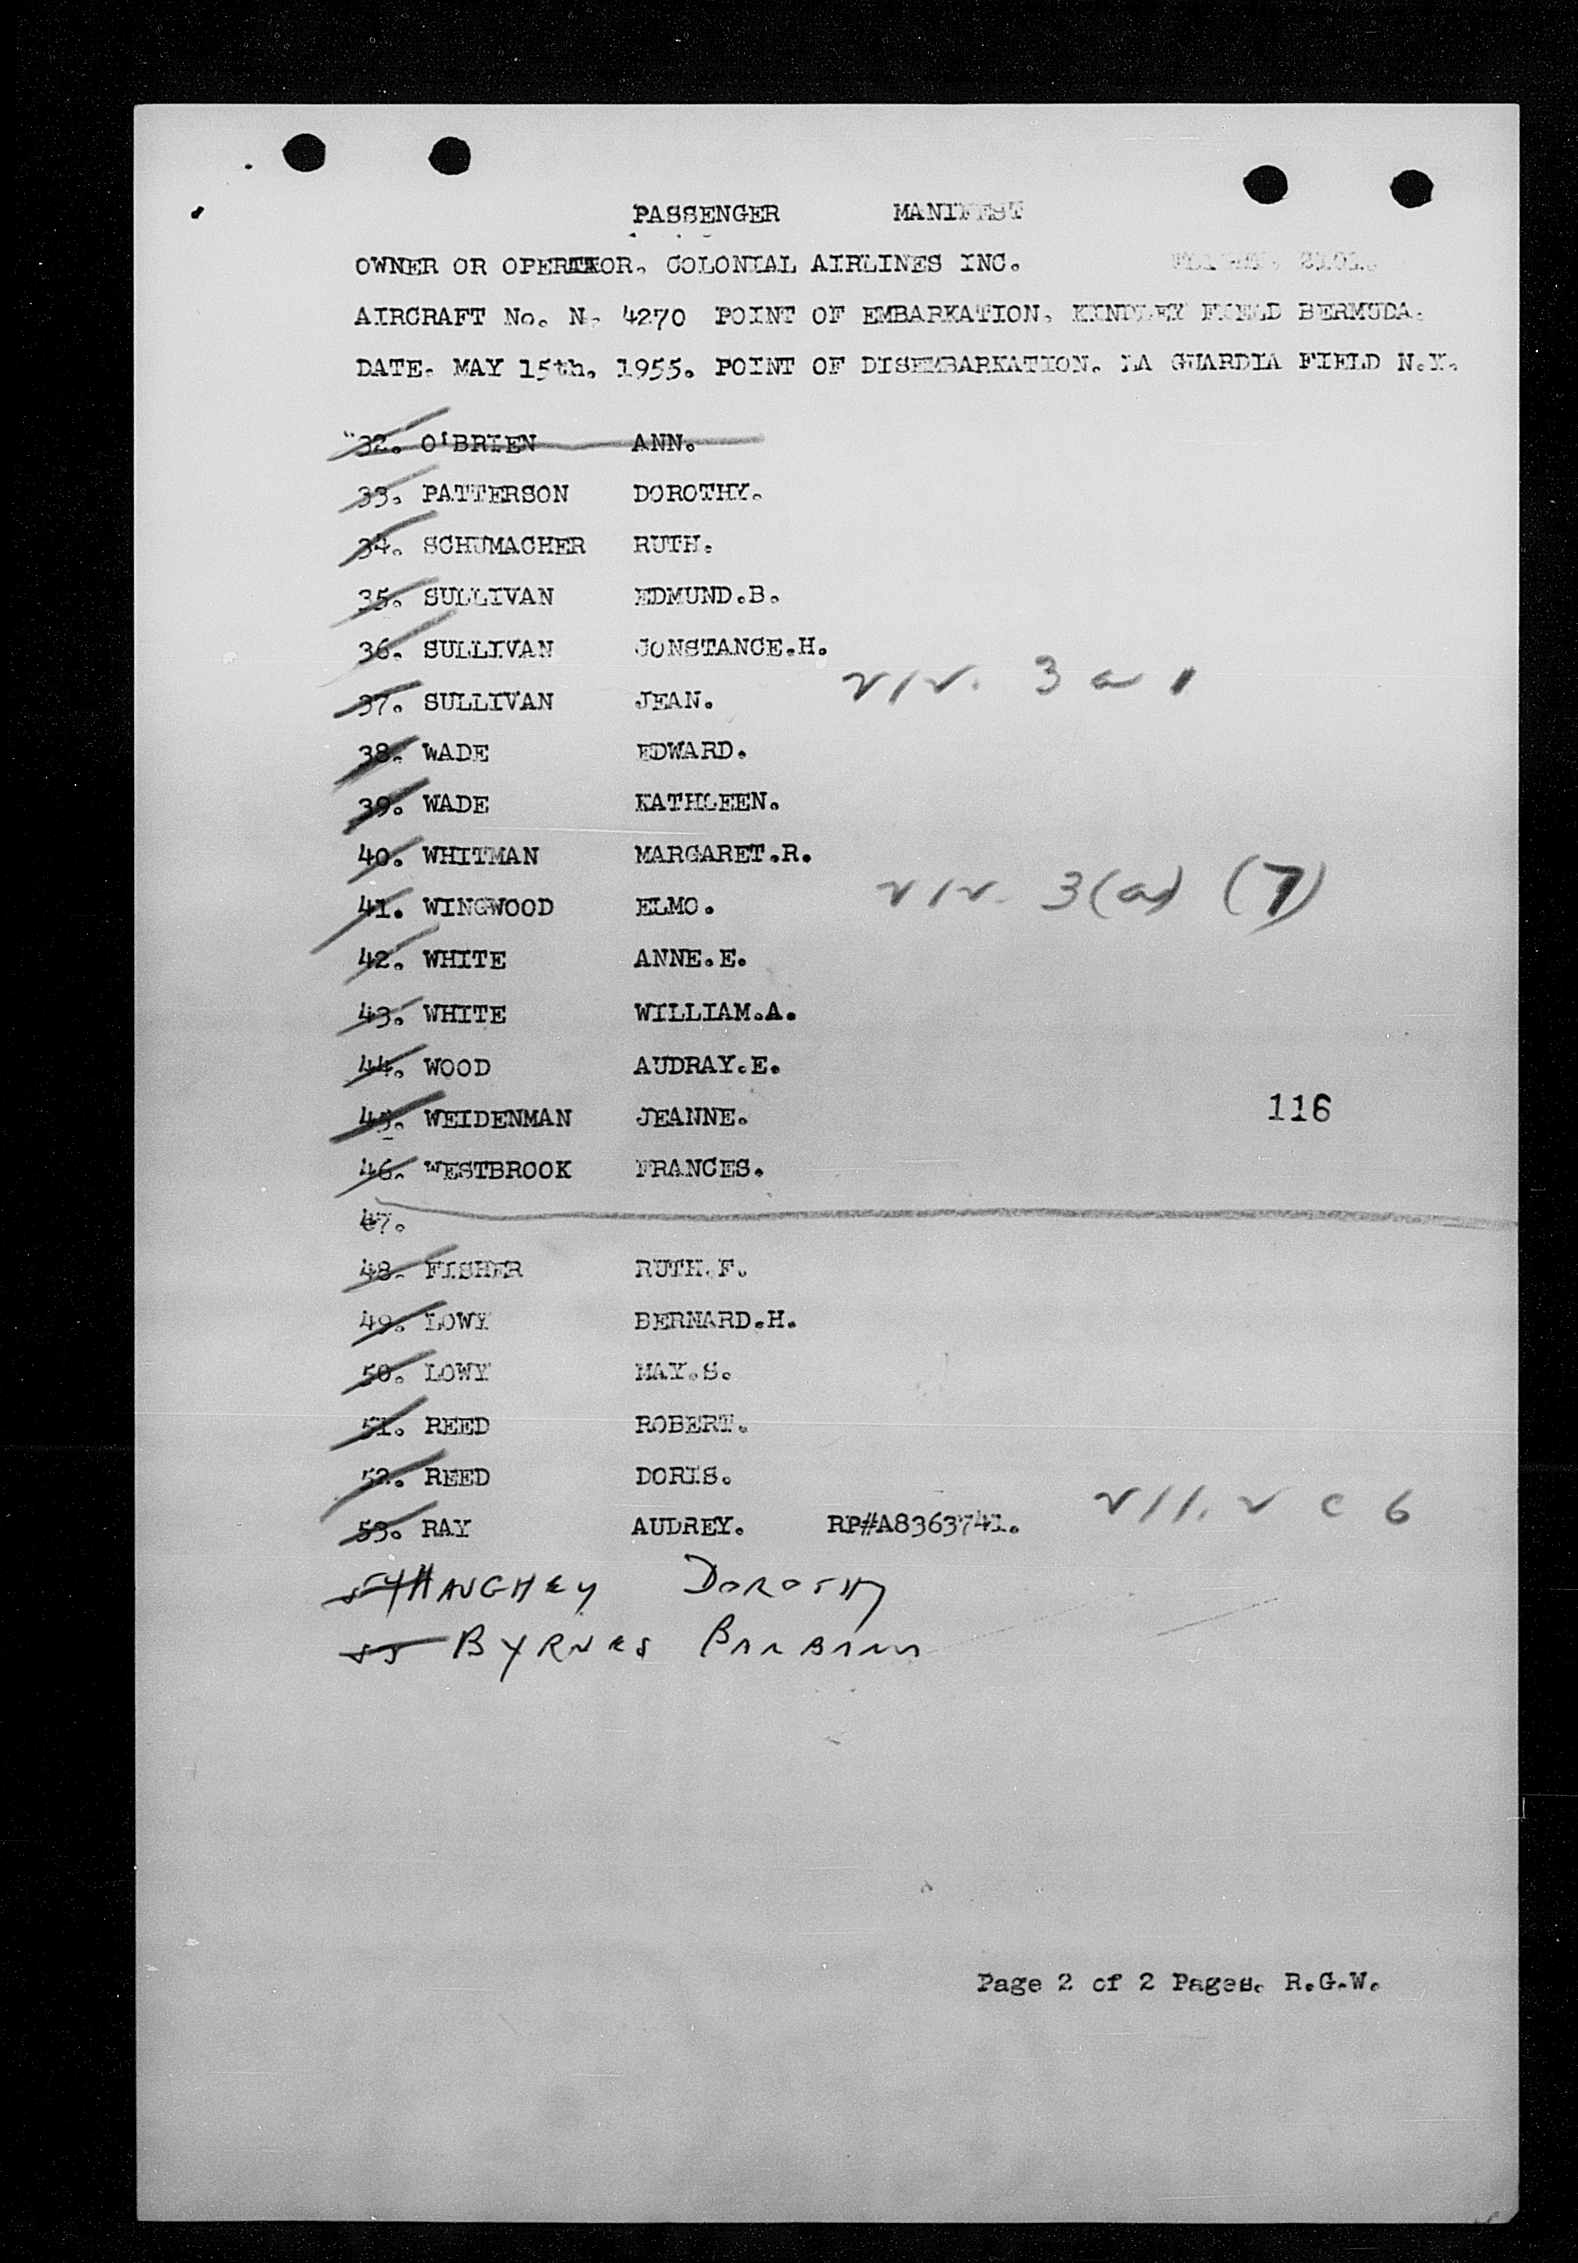 PASSENGER MANIFEST
OWNER OR OPERATOR. COLONIAL AIRLINES INC.
AIRCRAFT No. N. 4270 POINT OF EMBARKATION. KINDLEY FIELD BERMUDA.
DATE. MAY 15th. 1955. POINT OF DISEMBARKATION. LA GUARDIA FIELD N.Y.
32. O'BRIEN ANN.
33. PATTERSON DOROTHY.
34. SCHUMACHER RUTH.
35. SULLIVAN EDMUND.B.
36. SULLIVAN CONSTANCE.H.
37. SULLIVAN JEAN. 3 a 1
38. WADE EDWARD.
39. WADE KATHLEEN.
40. WHITMAN MARGARET.R.
41. WINGWOOD ELMO. 3(a) (7)
42. WHITE ANNE.E.
43. WHITE WILLIAM.A.
44. WOOD AUDRAY.E.
45. WEIDENMAN JEANNE. 116
46. WESTBROOK FRANCES.
47.
48. FISHER RUTH.F.
49. LOWY BERNARD.H.
50. LOWY MAY.S.
51. REED ROBERT.
52. REED DORIS.
53. RAY AUDREY. RP#A8363741. C 6
54 HAUGHEY DOROTHY
55 BYRNES BARBARA
Page 2 of 2 Pages. R.G.W.